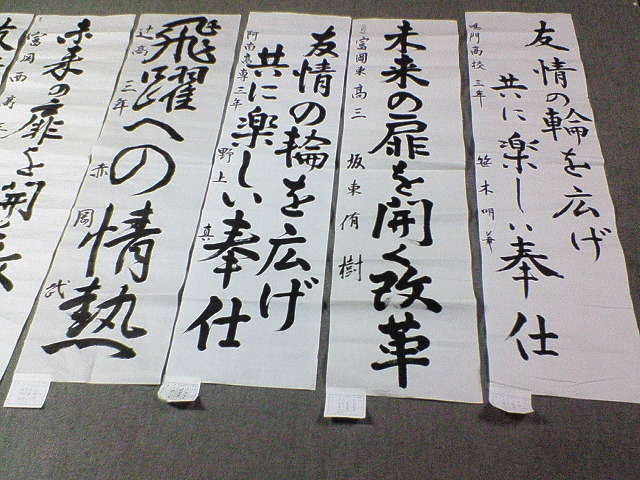 友情の輪を広げ
共に楽しい奉仕
鳴門高校 三年 笹木明華
未来の扉を開く改革
富岡東高三 坂東侑樹
友情の輪を広げ
共に楽しい奉仕
阿南高専三年 野上真
飛躍への情熱
辻高 三年 赤岡武
未来の扉を開
富岡西高三